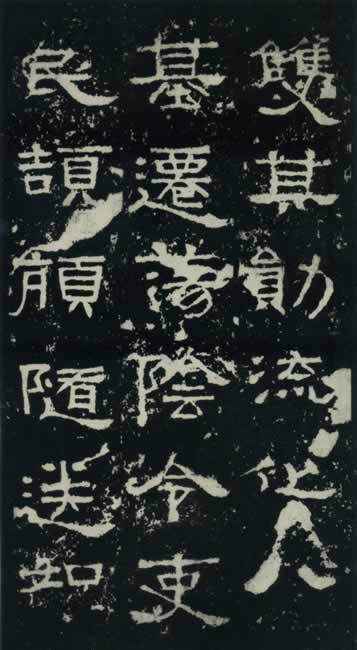 雙其勛流化八
基遷蕩陰令吏
民頡頏隨送如